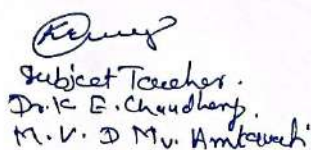 Subject Teacher.
Dr. K E. Chaudhary.
M. V. D Mv.